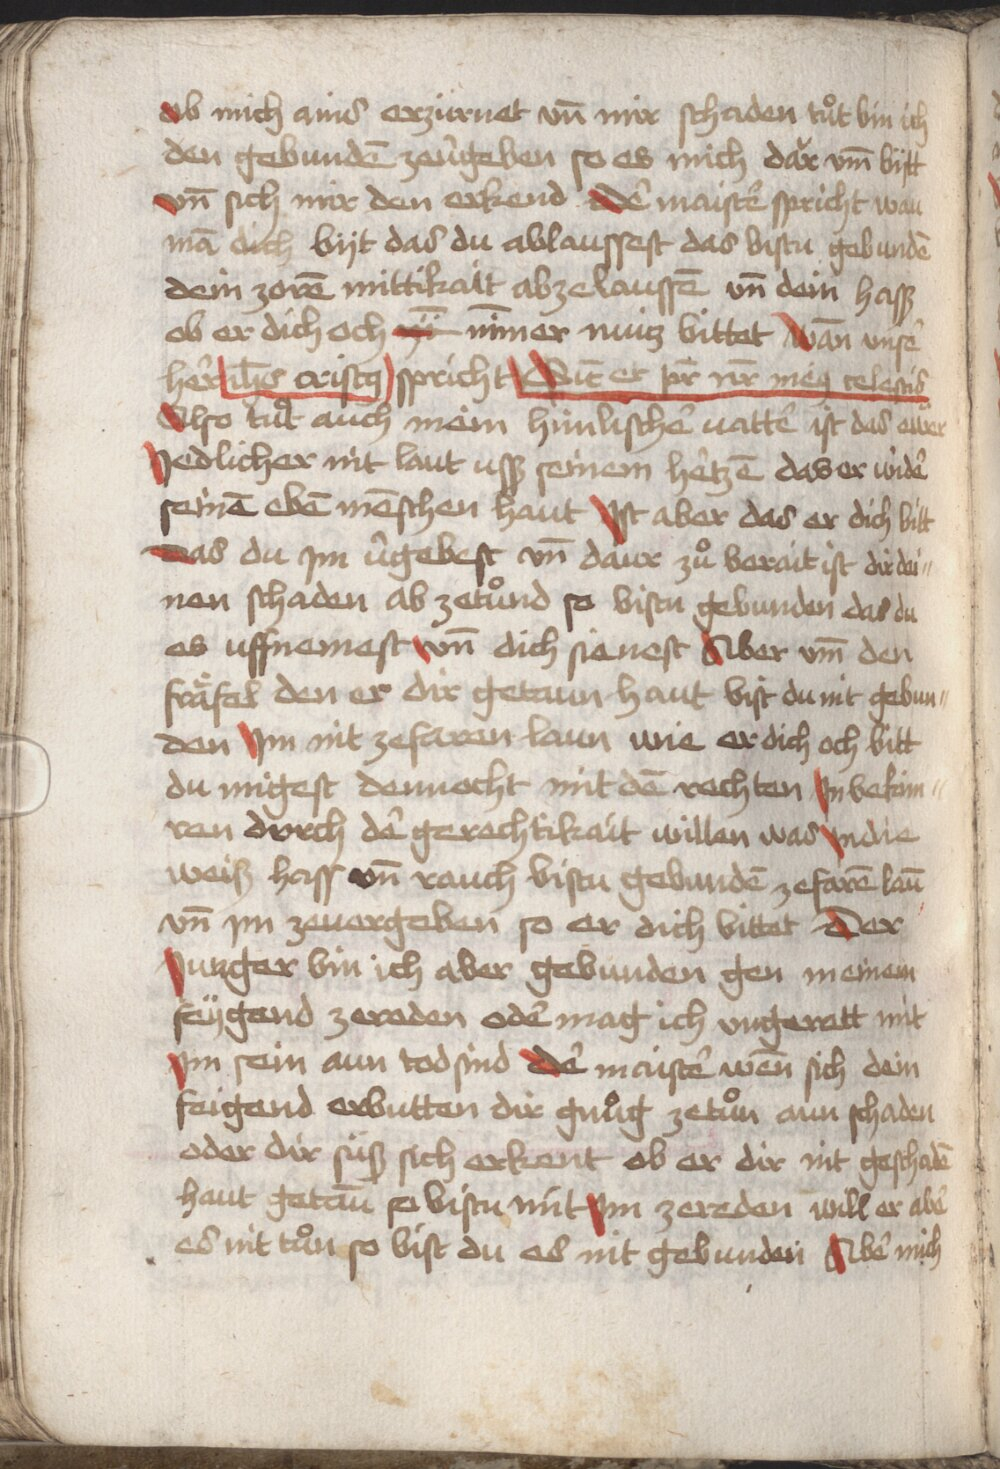 ob mich ains erzürnet vn̄ mir schaden tůt bin ich
den gebundē zeûgeben so es mich dar vm̄ bitt
vn̄ sich mir den erkend dē maistē spricht wan
mā dich bÿt das du ablaussest das bistu gebundē
dein zorē mittikait abzelaussē vn̄ dein hassz
ob er dich och nim̄er nutz bittet wān vnsē
hēr ih̄s cristꝯ spricht Sic̄ et pr̄ nr̄ meꝯ celestis
Also tůt auch mein himlischē vattē ist das ewer
Jedlicher nit laut ussz seinem hêtzē das er widē
seinē ebē mēschen haut Jst aber das er dich bitt
das du Jm ûgebest vn̄ daur zů berait ist dir dei„
nen schaden ab zetůnd so bistu gebunden das du
es uffnemest vn̄ dich sienest Aber vm̄ den
fräfel den er dir getaun haut bist du nit gebun„
den Jm nit zefaren laun wie er dich och bitt
du migest dennocht mit dē rechten Jn bekim„
ren durch dē gerechtikait willen was Jndie
weisz hass vn̄ rauch bistu gebundē zefarē laū
vn̄ Jm zeuergeben so er dich bittet Der
Junger bin ich aber gebunden gen meinem
feÿgend zereden odē mag ich vngerett mit
Jm sein aun todsind dē maistē wēn sich dein
feigend erbutten dir gnůg zetůn aun schaden
oder dir süsz sich erkent ob er dir nit geschadē
haut getaū so bistu mit Jm zereden will er abē
es nit tůn so bist du es nit gebunden Abē mich